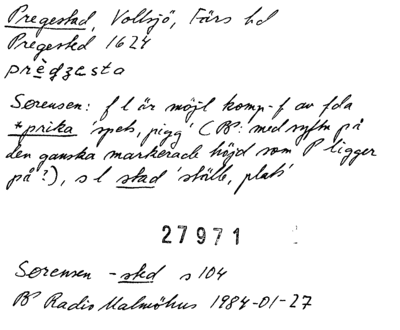 Pregestad, Vollsjö, Färs hd
Pregested 1624
prègzesta
Sørensen: f l är möjl komp-f av fda
*prika 'spets, pigg' (PS: med syftn på
den ganska markerade höjd som P ligger
på?), s l stad 'ställe, plats'
27971
Sørensen -sted s 104
Radio Malmöhus 1984-01-27